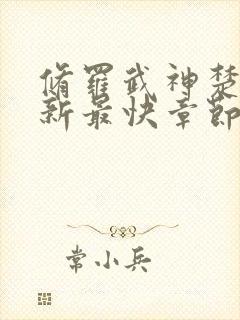 脩羅武神楚
新最快章節
常小兵